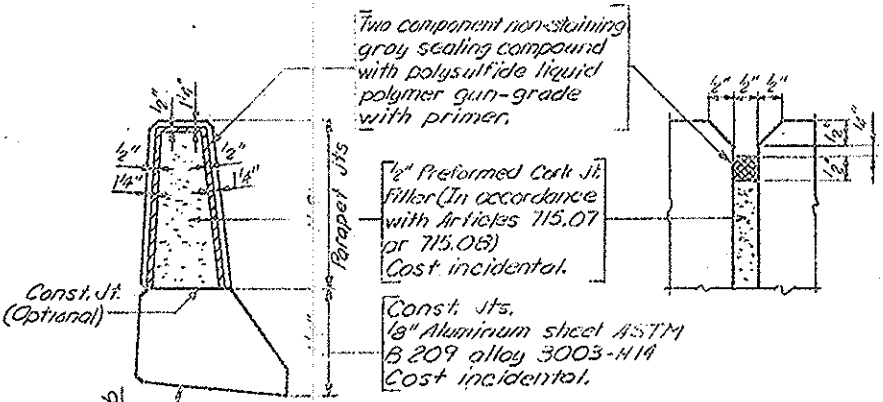 Two component non-staining
gray sealing compound
with polysulfide liquid
polymer gun-grade
with primer.
1/2"
1 1/4"
1/2"
1 1/4"
1/2"
1 1/4"
Parapet Jts
1/2" Preformed Cork Jt.
Filler (In accordance
with Articles 715.07
or 715.08)
Cost incidental.
Const. Jt.
(Optional)
Const. Jts.
1/8" Aluminum sheet ASTM
B 209 alloy 3003-H14
Cost incidental.
1/2" 1/2" 1/2"
1/2"
1/4"
1/2"